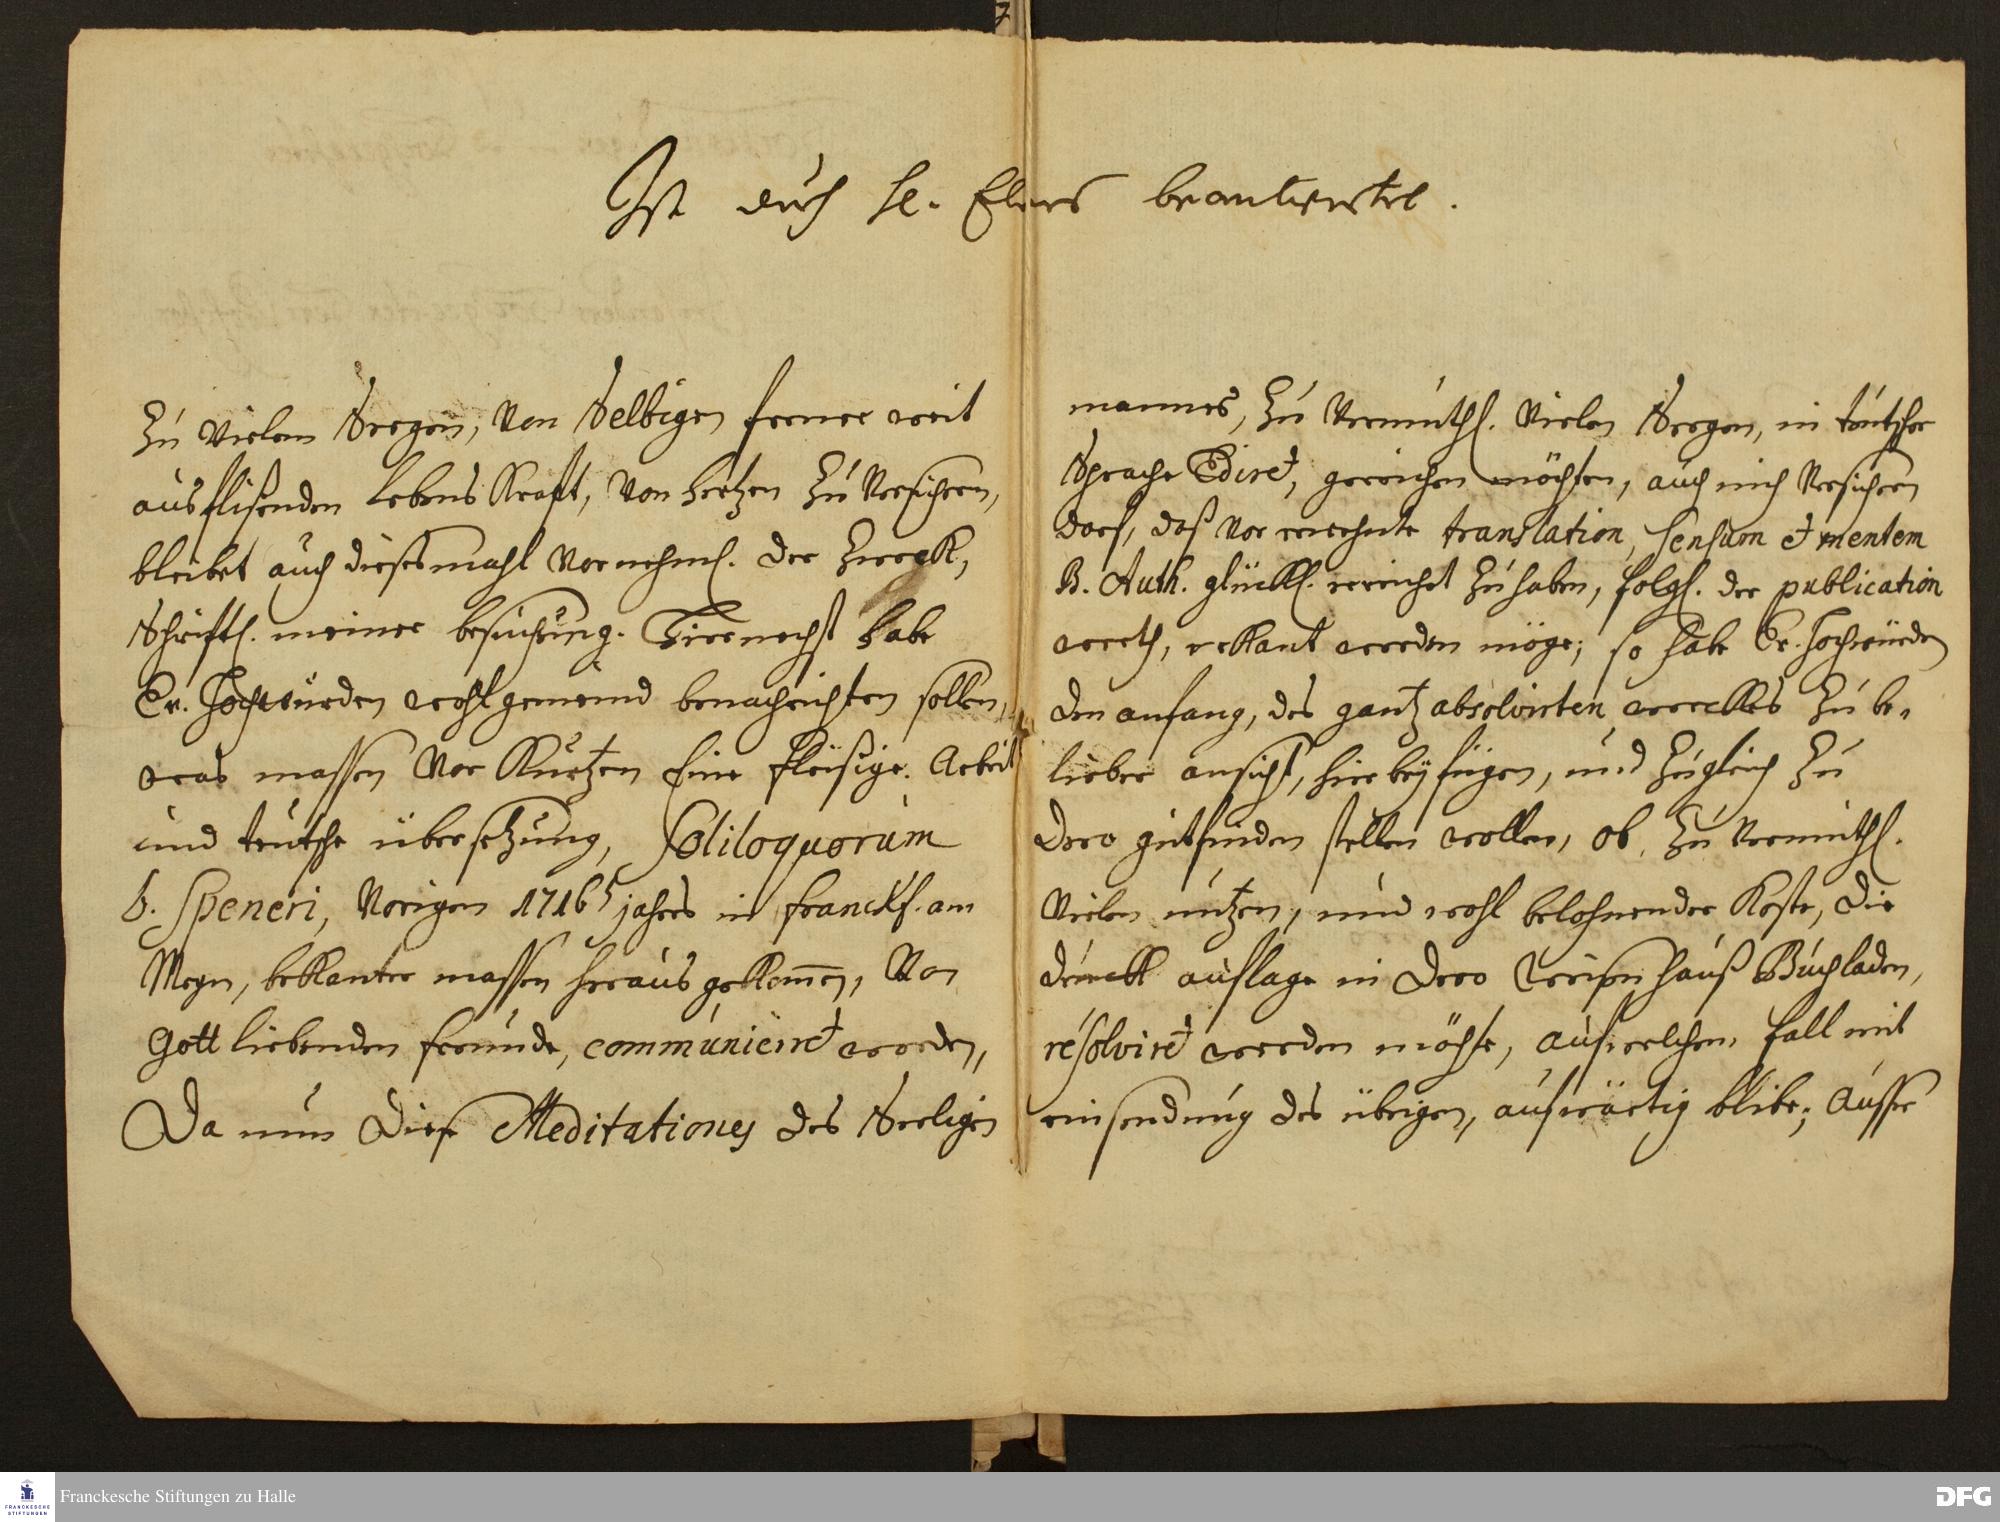 7
Ist durch H. Elers beantwortet.
Zu vielem Seegen, von Selbigen ferner weit
ausflißenden lebens Krafft, von hertzen zu versichern,
bleibet auch dießesmahl vornehml. der Zweck,
Schriftl. meiner besuchung. Hirnechst habe
Ew. Hochwürden wohlgemeind benachrichten sollen,
was massen vor Kurtzen Eine fleißige Arbeit
und teutsche übersetzung, Soliloquorum
b. Speneri, vorigen 1716 jahres in franckf. am
Meyn, bekanter massen heraus gekommen, von
Gott liebenden freunde, communiciret worden,
Da nun diese Meditationes des Seeligen
mannes, zu vermuthl. vielen Seegen, in teutscher
Sprache Ediret, gereichen möchten, auch mich versichern
darf, daß vor erwehnte translation, sensum et mentem
B. Auth. glückl. erreichet zu haben, folgl. der publication
werth, erkant werden möge; so habe Ew. Hochwürden
den anfang, des gantz absolvirten werckes zu be-
lieber ansicht, hierbey fügen, und zugleich zu
Dero gutfinden stellen wollen, ob, zu vermuthl.
vielen nutzen, und wohl belohnender Koste, die
druck auflage in Dero Weisen hauß Buchladen,
resolviret werden möchte, auf welchen fall mit
einsendung des übrigen, aufwärtig blibe; Ausser
Franckesche Stiftungen zu Halle
FRANCKESCHE
STIFTUNGEN
DFG